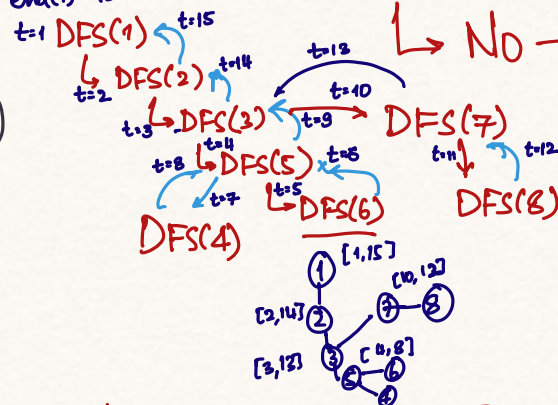 t=1 DFS(1) t=15
t=2 DFS(2) t=14
NO
t=13
t=3 DFS(3) t=9 t=10 DFS(7)
t=4
t=8 DFS(5) t=6 t=11 t=12
t=7 t=5
DFS(4) DFS(6) DFS(8)
1 [1,15]
[10,12]
[2,14] 2 7 8
[3,13] 3 [4,8]
5 6
4